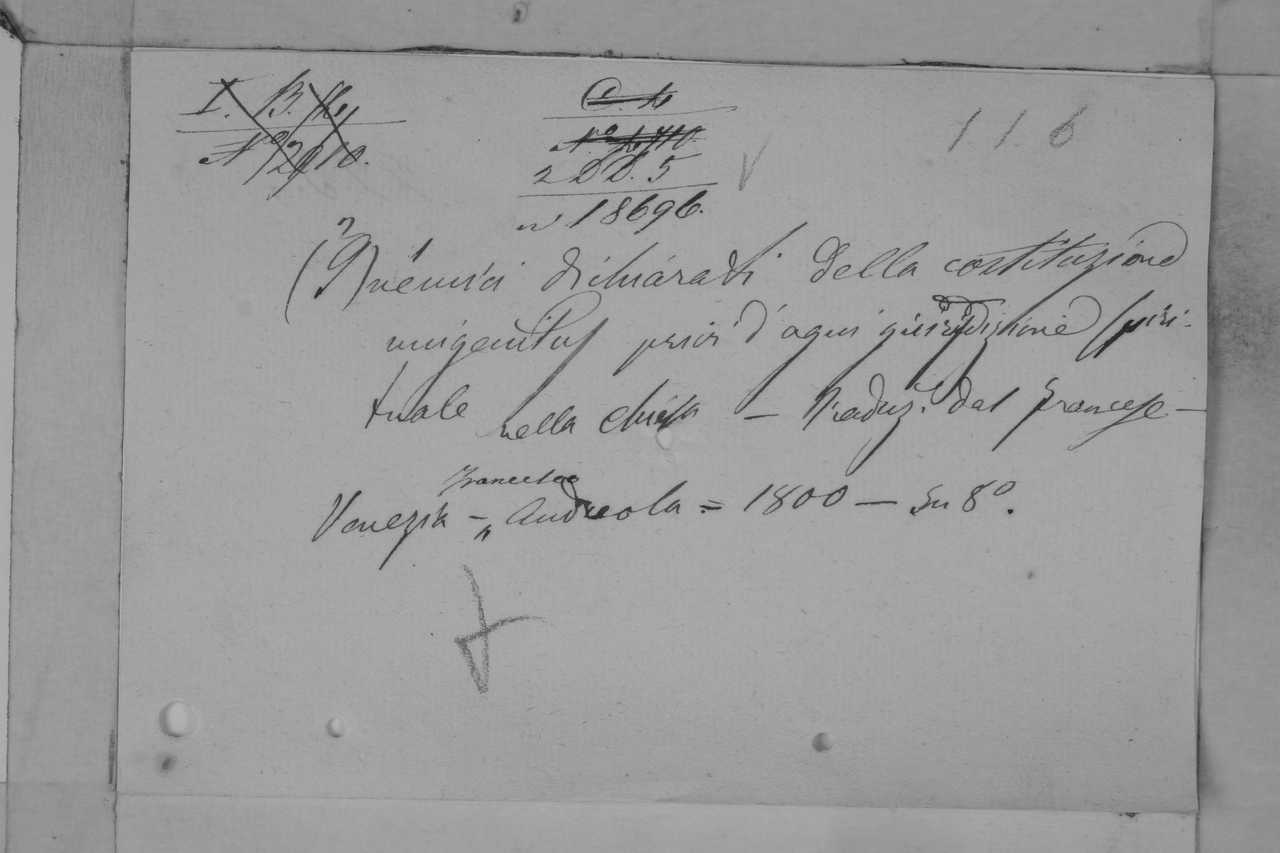 I. B.
Nº 2910.
Nº 4.710.
2 DD. 5
nº 18696.
1.1.6
(I) nemici dichiarati della costituzione
unigenitus privi d'agni giurisdizione spiri-
tuale nella chiesa — Traduz.e dal francese —
Francesco
Venezia - Andreola = 1800 — In 8º.